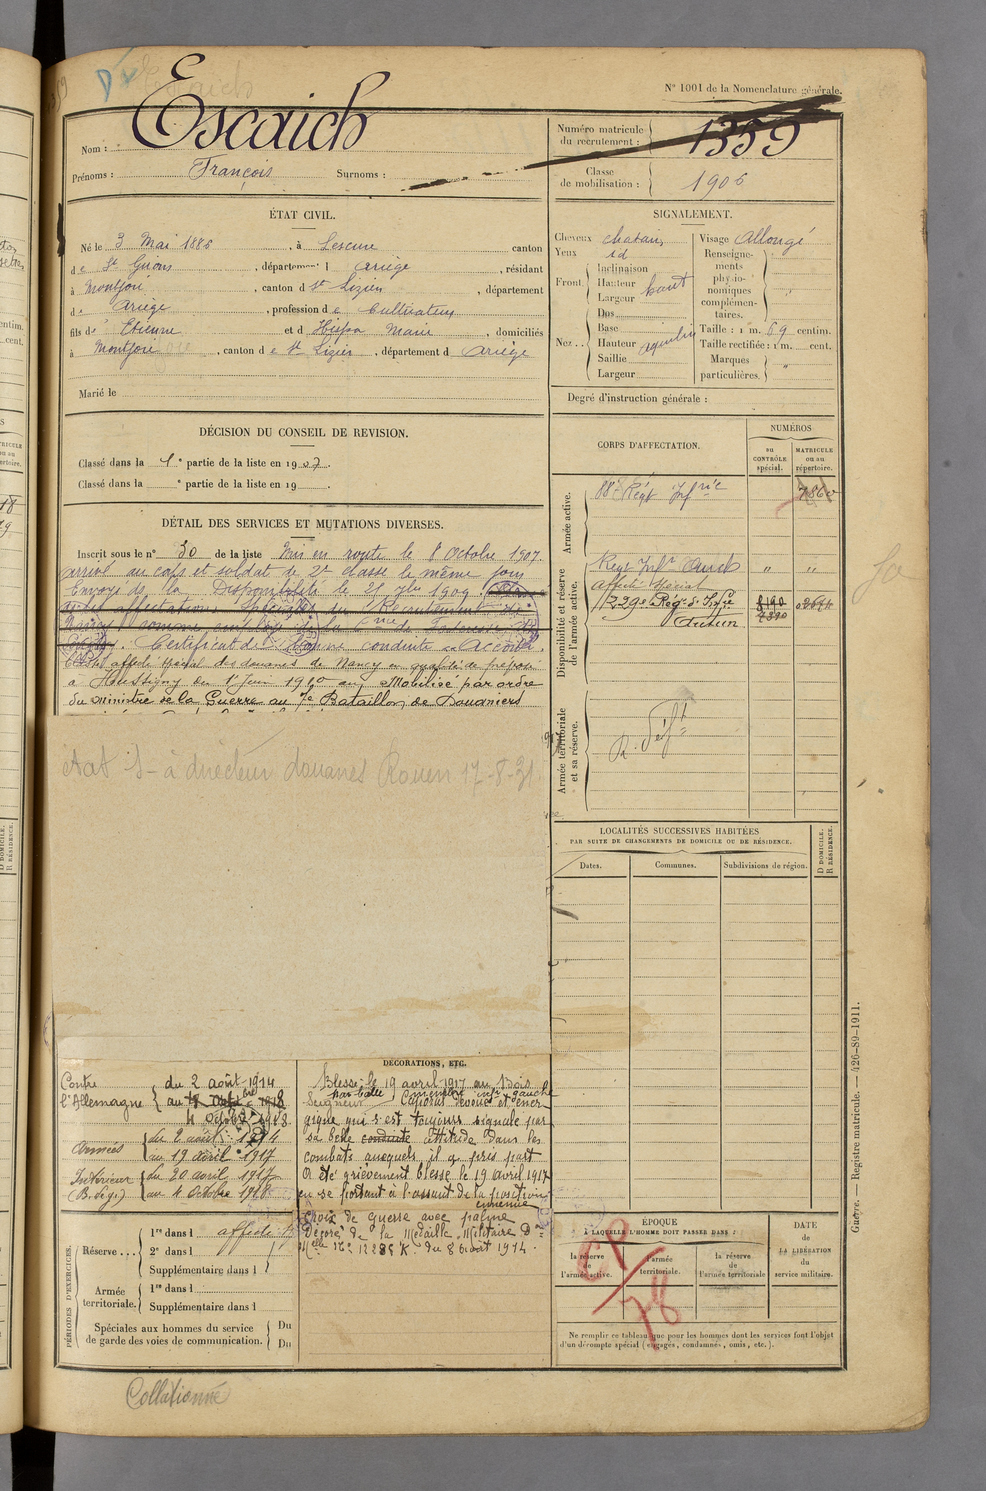 N° 1001 de la Nomenclature générale.
Nom : Escaich
Prénoms : François Surnoms :
Numéro matricule du recrutement : 1359
Classe de mobilisation : 1906
ÉTAT CIVIL.
Né le 3 Mai 1886, à Lescure canton
de St Girons, département d Ariège, résidant
à Montjoie, canton d St Lizier, département
d Ariège, profession de Cultivateur
fils de Etienne et d Marie, domiciliés
à Montjoie, canton de St Lizier, département d Ariège
Marié le
SIGNALEMENT.
Cheveux chatain
Yeux id
Front. Inclinaison
Hauteur haut
Largeur
Nez.. Dos
Base
Hauteur aquilin
Saillie
Largeur
Visage Allongé
Renseignements physionomiques complémentaires. "
Taille : 1 m. 69 centim.
Taille rectifiée : 1 m. cent.
Marques particulières. "
Degré d'instruction générale :
DÉCISION DU CONSEIL DE REVISION.
Classé dans la 1e partie de la liste en 1907.
Classé dans la e partie de la liste en 19 .
DÉTAIL DES SERVICES ET MUTATIONS DIVERSES.
Inscrit sous le n° 30 de la liste Mis en route le 8 Octobre 1907
arrivé au corps et soldat de 2e classe le même jour
Envoyé de la Disponibilité le 25 7bre 1909
Certificat de Bonne conduite Accordé.
affecté spécial des douanes de Nancy en qualité de préposé
à Haussigny du 1er Juin 1910 Mobilisé par ordre
du Ministre de la Guerre au 7e Bataillon de Douaniers
à directeur douanes Rouen 17-8-31
CORPS D'AFFECTATION.
NUMÉROS
au CONTRÔLE spécial.
MATRICULE ou au répertoire.
Armée active.
88e Régt Infrie 7860
Disponibilité et réserve de l'armée active.
Régt Infie Auch " "
Affecté spécial
229e Rég d'Infie 8190
Autun 7390
Armée territoriale et sa réserve.
R. Déf
LOCALITÉS SUCCESSIVES HABITÉES
PAR SUITE DE CHANGEMENTS DE DOMICILE OU DE RÉSIDENCE.
Dates. Communes. Subdivisions de région.
D DOMICILE.
R RÉSIDENCE.
Contre l'Allemagne
du 2 août 1914
au
4 Octobre 1918
Armées
du 2 août 1914
au 19 avril 1917
Intérieur
du 20 avril 1917
au 4 Octobre 1918
DÉCORATIONS, ETC.
Blessé le 19 avril 1917 au Bois
Seigneur par balle membre infr gauche
Caporal dévoué et énergique
qui s'est toujours signalé par
sa belle conduite attitude dans les
combats auxquels il a pris part
A été grièvement blessé le 19 avril 1917
en se portant à l'assaut de la position
ennemie
Croix de guerre avec palme
Décoré de la Médaille Militaire
du 8 août 1914.
PÉRIODES D'EXERCICES.
Réserve... 1re dans l affecté
2e dans l
Supplémentaire dans l
Armée territoriale. 1re dans l
Supplémentaire dans l
Spéciales aux hommes du service
de garde des voies de communication. Du
Du
ÉPOQUE
À LAQUELLE L'HOMME DOIT PASSER DANS :
la réserve de l'armée active.
l'armée territoriale.
la réserve de l'armée territoriale
DATE DE LA LIBÉRATION du service militaire.
CP
78
Ne remplir ce tableau que pour les hommes dont les services font l'objet
d'un décompte spécial (engagés, condamnés, omis, etc.).
Guerre. — Registre matricule. — 426-89-1911.
Collationné